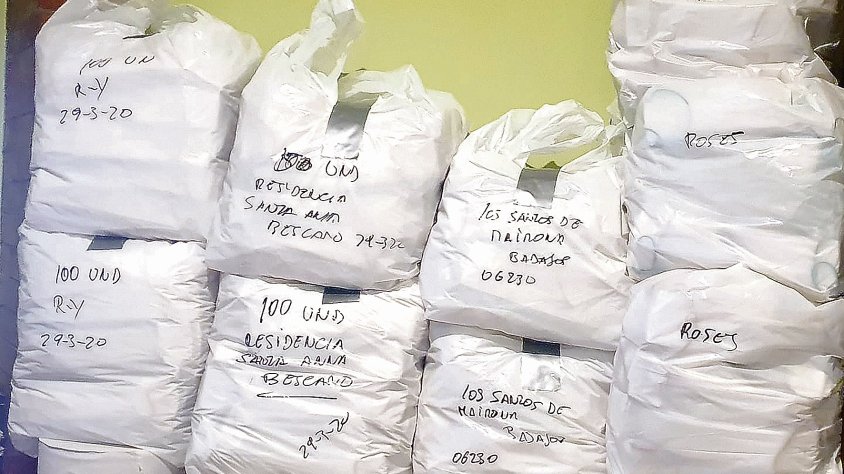 100 UND
R-Y
29-3-20
100 UND
R-Y
29-3-20
UND
RESIDENCIA
SANTA ANNA
BESCANO 29-3-20
100 UND
RESIDENCIA
SANTA ANNA
BESCANO
29-3-20
LOS SANTOS DE
MAIRONA
BADAJOS
06230
LOS SANTOS DE
MAIRONA
BADAJOS
06230
ROSES
ROSES